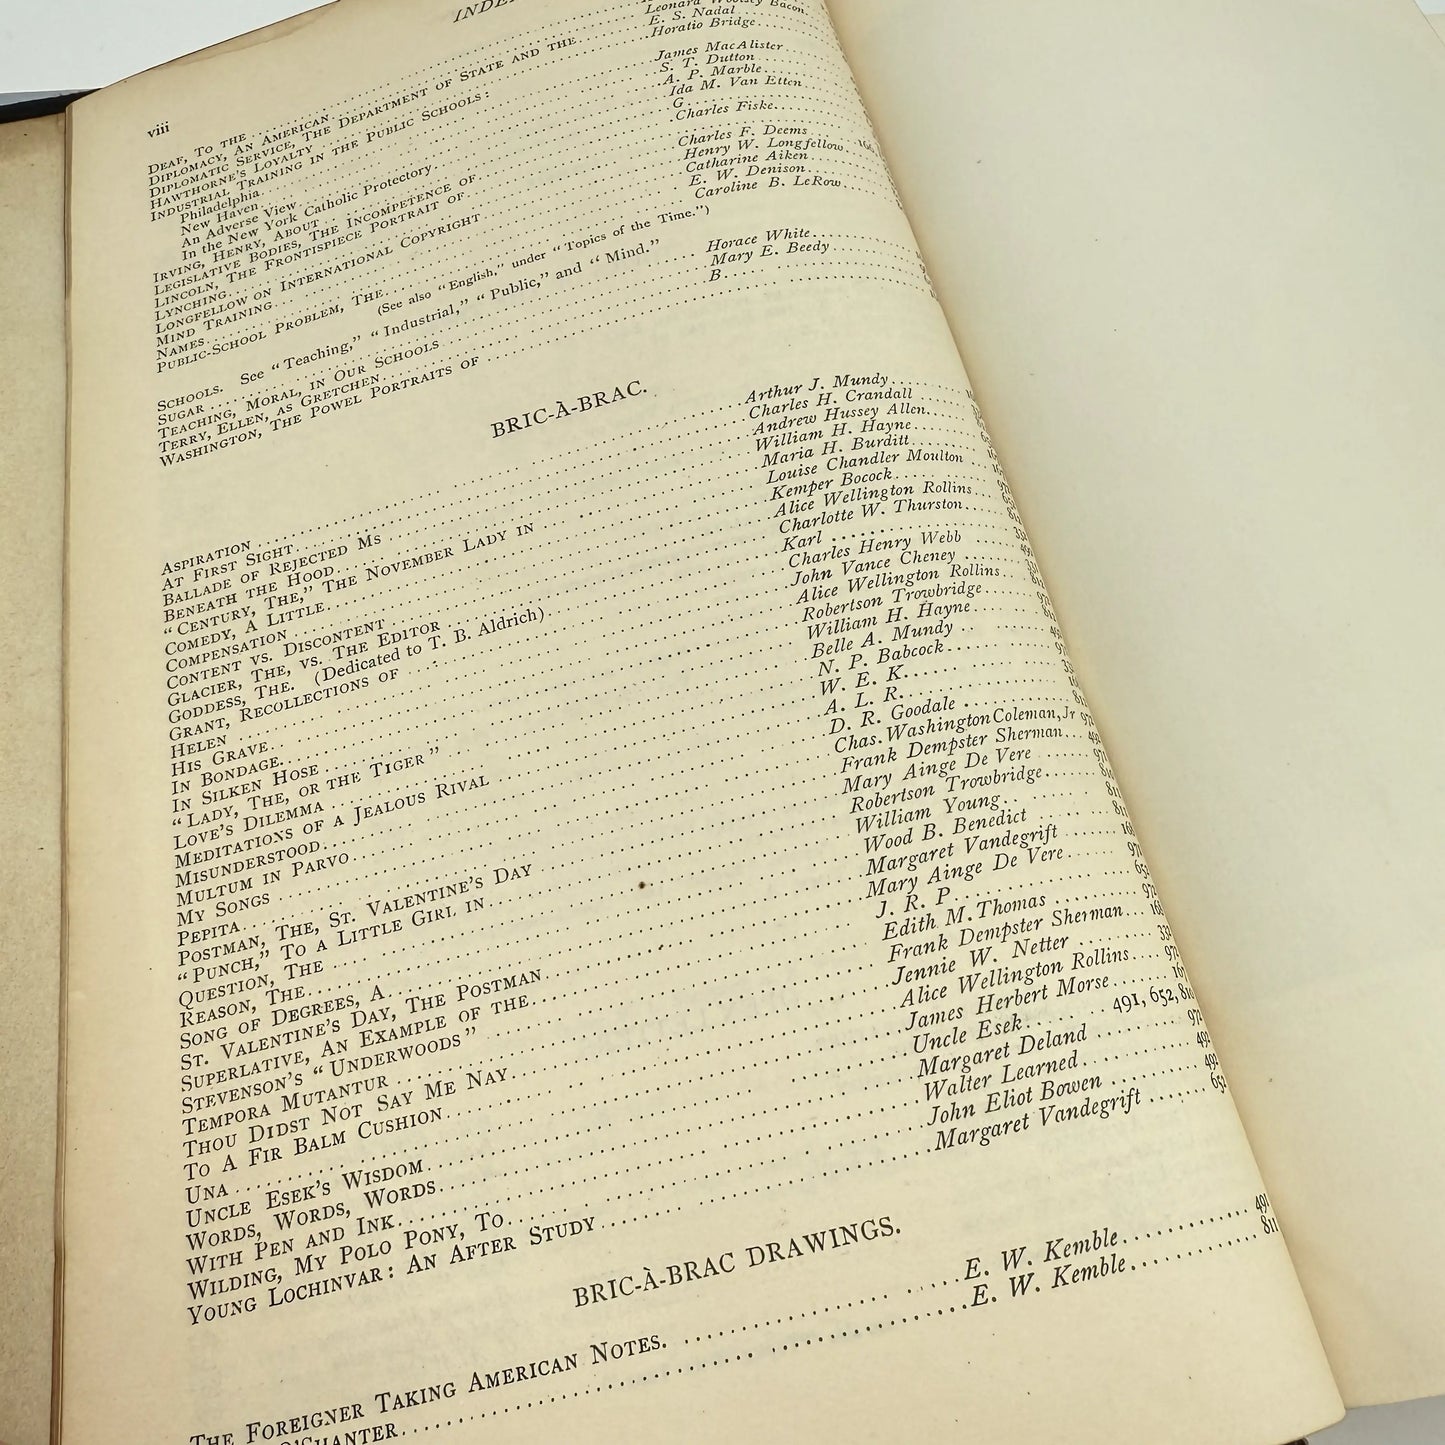 viii
INDE
DEAF, TO THE
DIPLOMACY, AN AMERICAN Leonard Woolsey Bacon.
DIPLOMATIC SERVICE, THE DEPARTMENT OF STATE AND THE E. S. Nadal
HAWTHORNE'S LOYALTY Horatio Bridge
INDUSTRIAL TRAINING IN THE PUBLIC SCHOOLS:
Philadelphia James MacAlister
New Haven S. T. Dutton
An Adverse View A. P. Marble
In the New York Catholic Protectory Ida M. Van Etten
IRVING, HENRY, ABOUT G
LEGISLATIVE BODIES, THE INCOMPETENCE OF Charles Fiske
LINCOLN, THE FRONTISPIECE PORTRAIT OF
LYNCHING Charles F. Deems
LONGFELLOW ON INTERNATIONAL COPYRIGHT Henry W. Longfellow
MIND TRAINING Catharine Aiken
NAMES E. W. Denison
PUBLIC-SCHOOL PROBLEM, THE Caroline B. LeRow
(See also "English," under "Topics of the Time.")
SCHOOLS. See "Teaching," "Industrial," "Public," and "Mind."
SUGAR Horace White
TEACHING, MORAL, IN OUR SCHOOLS Mary E. Beedy
TERRY, ELLEN, AS GRETCHEN B
WASHINGTON, THE POWEL PORTRAITS OF
BRIC-À-BRAC.
ASPIRATION Arthur J. Mundy
AT FIRST SIGHT Charles H. Crandall
BALLADE OF REJECTED MS Andrew Hussey Allen
BENEATH THE HOOD William H. Hayne
"CENTURY, THE," THE NOVEMBER LADY IN Maria H. Burditt
COMEDY, A LITTLE Louise Chandler Moulton
COMPENSATION Kemper Bocock
CONTENT VS. DISCONTENT Alice Wellington Rollins
GLACIER, THE, VS. THE EDITOR Charlotte W. Thurston
GODDESS, THE. (Dedicated to T. B. Aldrich) Karl
GRANT, RECOLLECTIONS OF Charles Henry Webb
HELEN John Vance Cheney
HIS GRAVE Alice Wellington Rollins
IN BONDAGE Robertson Trowbridge
IN SILKEN HOSE William H. Hayne
"LADY, THE, OR THE TIGER" Belle A. Mundy
LOVE'S DILEMMA N. P. Babcock
MEDITATIONS OF A JEALOUS RIVAL W. E. K
MISUNDERSTOOD A. L. R.
MULTUM IN PARVO D. R. Goodale
MY SONGS Chas. Washington Coleman, Jr
PEPITA Frank Dempster Sherman
POSTMAN, THE, ST. VALENTINE'S DAY Mary Ainge De Vere
"PUNCH," TO A LITTLE GIRL IN Robertson Trowbridge
QUESTION, THE William Young
REASON, THE Wood B. Benedict
SONG OF DEGREES, A Margaret Vandegrift
ST. VALENTINE'S DAY, THE POSTMAN Mary Ainge De Vere
SUPERLATIVE, AN EXAMPLE OF THE J. R. P
STEVENSON'S "UNDERWOODS" Edith M. Thomas
TEMPORA MUTANTUR Frank Dempster Sherman
THOU DIDST NOT SAY ME NAY Jennie W. Netter
TO A FIR BALM CUSHION Alice Wellington Rollins
UNA James Herbert Morse
UNCLE ESEK'S WISDOM Uncle Esek 491, 652, 810
WORDS, WORDS, WORDS Margaret Deland
WITH PEN AND INK Walter Learned
WILDING, MY POLO PONY, TO John Eliot Bowen
YOUNG LOCHINVAR: AN AFTER STUDY Margaret Vandegrift
BRIC-À-BRAC DRAWINGS.
THE FOREIGNER TAKING AMERICAN NOTES. E. W. Kemble 491
O'SHANTER E. W. Kemble 811